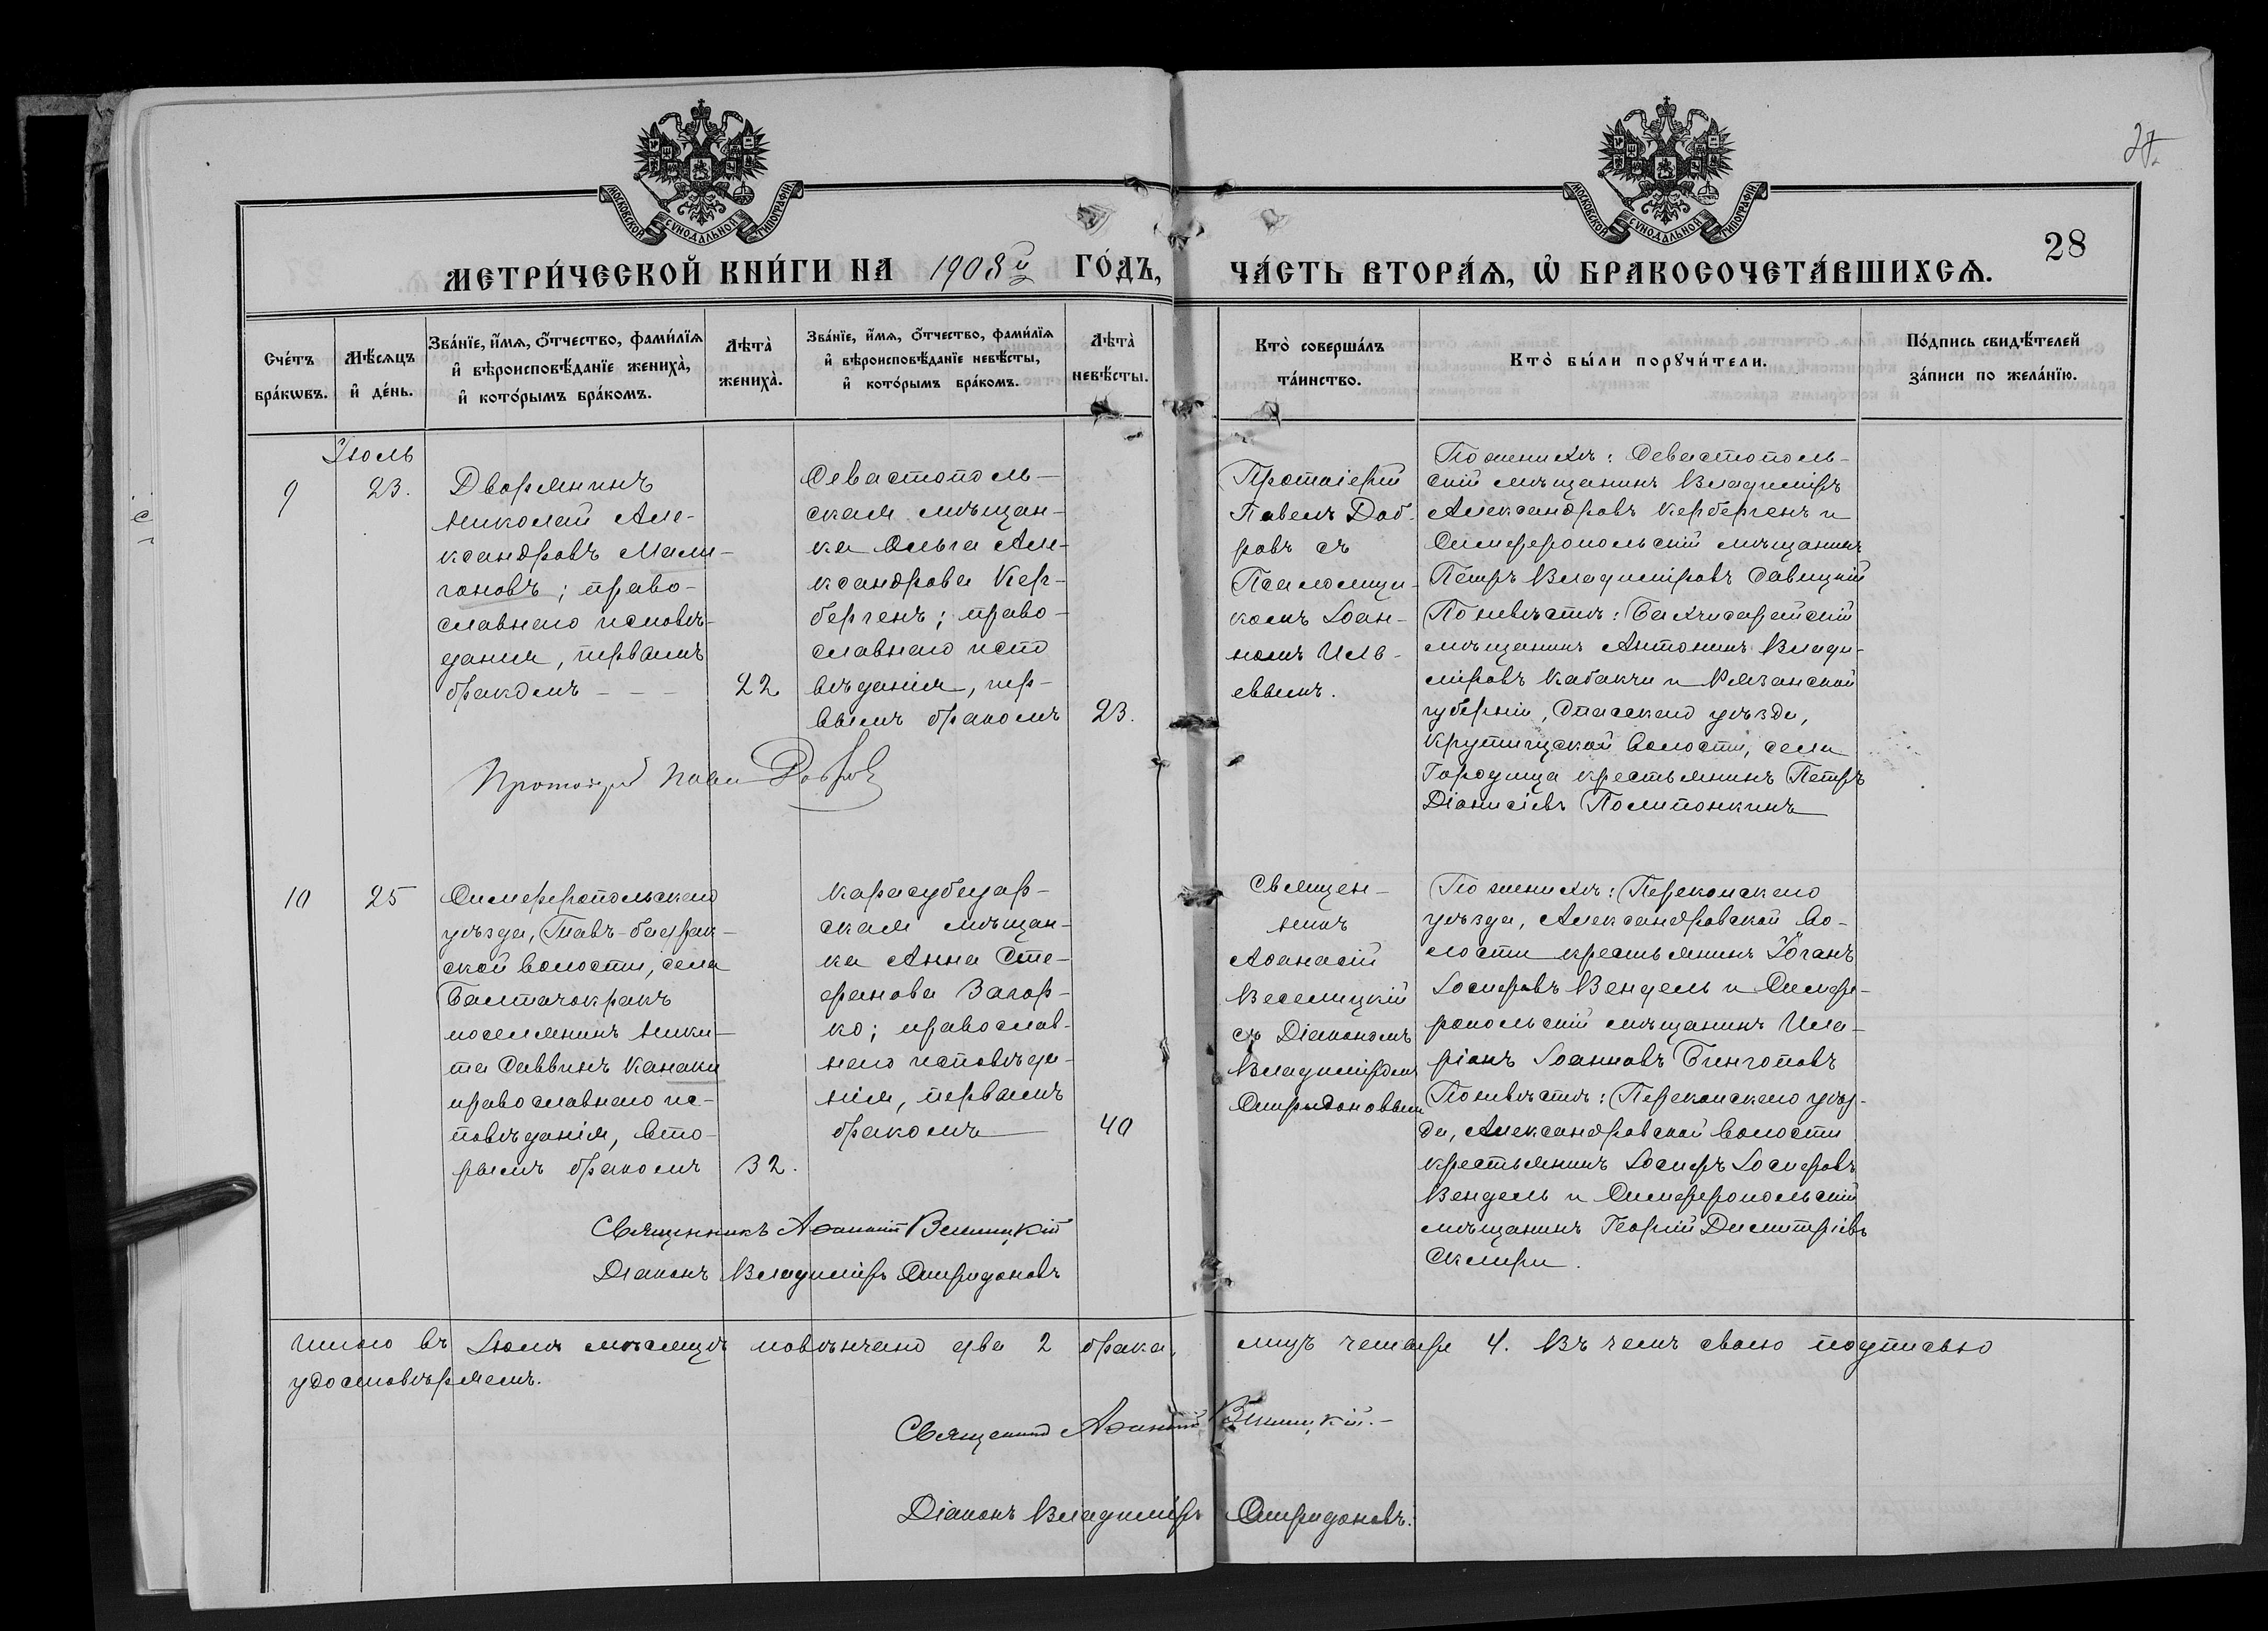 27
28
МОСКОВСКОЙ СѴНОДАЛЬНОЙ ТИПОГРАФІИ
МОСКОВСКОЙ СѴНОДАЛЬНОЙ ТИПОГРАФІИ
МЕТРИ́ЧЕСКОЙ КНИ́ГИ НА 1908й ГО́ДЪ,
ЧА́СТЬ ВТОРА́Ѧ, Ѽ БРАКОСОЧЕТА́ВШИХСѦ.
Сче́тъ
бра́кѡвъ.
Мѣ́сѧцъ
и҆ де́нь.
Зва́нїе, и҆́мѧ, ѻ҆́тчество, фами́лїѧ
и҆ вѣроисповѣ́данїе жениха̀,
и҆ кото́рымъ бра́комъ.
Лѣта̀
жениха̀.
Зва́нїе, и҆́мѧ, ѻ҆́тчество, фами́лїѧ
и҆ вѣроисповѣ́данїе невѣ́сты,
и҆ кото́рымъ бра́комъ.
Лѣта̀
невѣ́сты.
Кто̀ соверша́лъ
та́инство.
Кто̀ бы́ли порꙋчи́тели.
По́дпись свидѣ́телей
за́писи по жела́нїю.
Іюль
9
23.
Дворянинъ
Николай Але-
ксандровъ Мали-
гоновъ; право-
славнаго исповѣ-
данія, первымъ
бракомъ - - -
22
Севастополь-
ская мѣщан-
ка Ольга Але-
ксандрова Кер-
бергенъ; право-
славнаго испо
вѣданія, пер-
вымъ бракомъ
23.
Протоіерей
Павелъ Доб-
ровъ съ
Псаломщи-
комъ Іоан-
номъ Иль-
евымъ.
По женихѣ: Севастополь-
скій мѣщанинъ Владиміръ
Александровъ Кербергенъ и
Симферопольскій мѣщанинъ
Петръ Владиміровъ Савицкій
По невѣстѣ: Бахчисарайскій
мѣщанинъ Антонинъ Влади-
міровъ Кабакчи и Рязанской
губерніи, Спасскаго уѣзда,
Крутицкой волости, села
Городища крестьянинъ Петръ
Діонисіевъ Полипонкинъ
Протоіерей Павелъ Добровъ
10
25
Симферопольскаго
уѣзда, Тавъ-бадрак-
ской волости, села
Балтачокракъ
поселянинъ Ники-
та Саввинъ Канаки
православнаго ис-
повѣданія, вто-
рымъ бракомъ
32.
Карасубазар-
ская мѣщан-
ка Анна Сте-
фанова Загор-
ко; православ-
наго исповѣда-
нія, первымъ
бракомъ
40
Священ-
никъ
Аѳанасій
Веселицкій
съ Діакономъ
Владиміромъ
Спиридоновымъ
По женихѣ: Перекопскаго
уѣзда, Александровской во-
лости крестьянинъ Іоганъ
Іосифовъ Вендель и Симфе-
ропольскій мѣщанинъ Ила-
ріонъ Іоанновъ Бинтоповъ
По невѣстѣ: Перекопскаго уѣз-
да, Александровской волости
крестьянинъ Іосифъ Іосифовъ
Вендель и Симферопольскій
мѣщанинъ Георгій Димитріевъ
Скляри.
Священникъ Аѳанасій Веселицкій
Діаконъ Владиміръ Спиридоновъ
Итого въ Іюлѣ мѣсяцѣ повѣнчано два 2 брака, лицъ четыре 4. Въ чемъ своею подписью
удостовѣряемъ.
Священникъ Аѳанасій Веселицкій.-
Діаконъ Владиміръ Спиридоновъ.